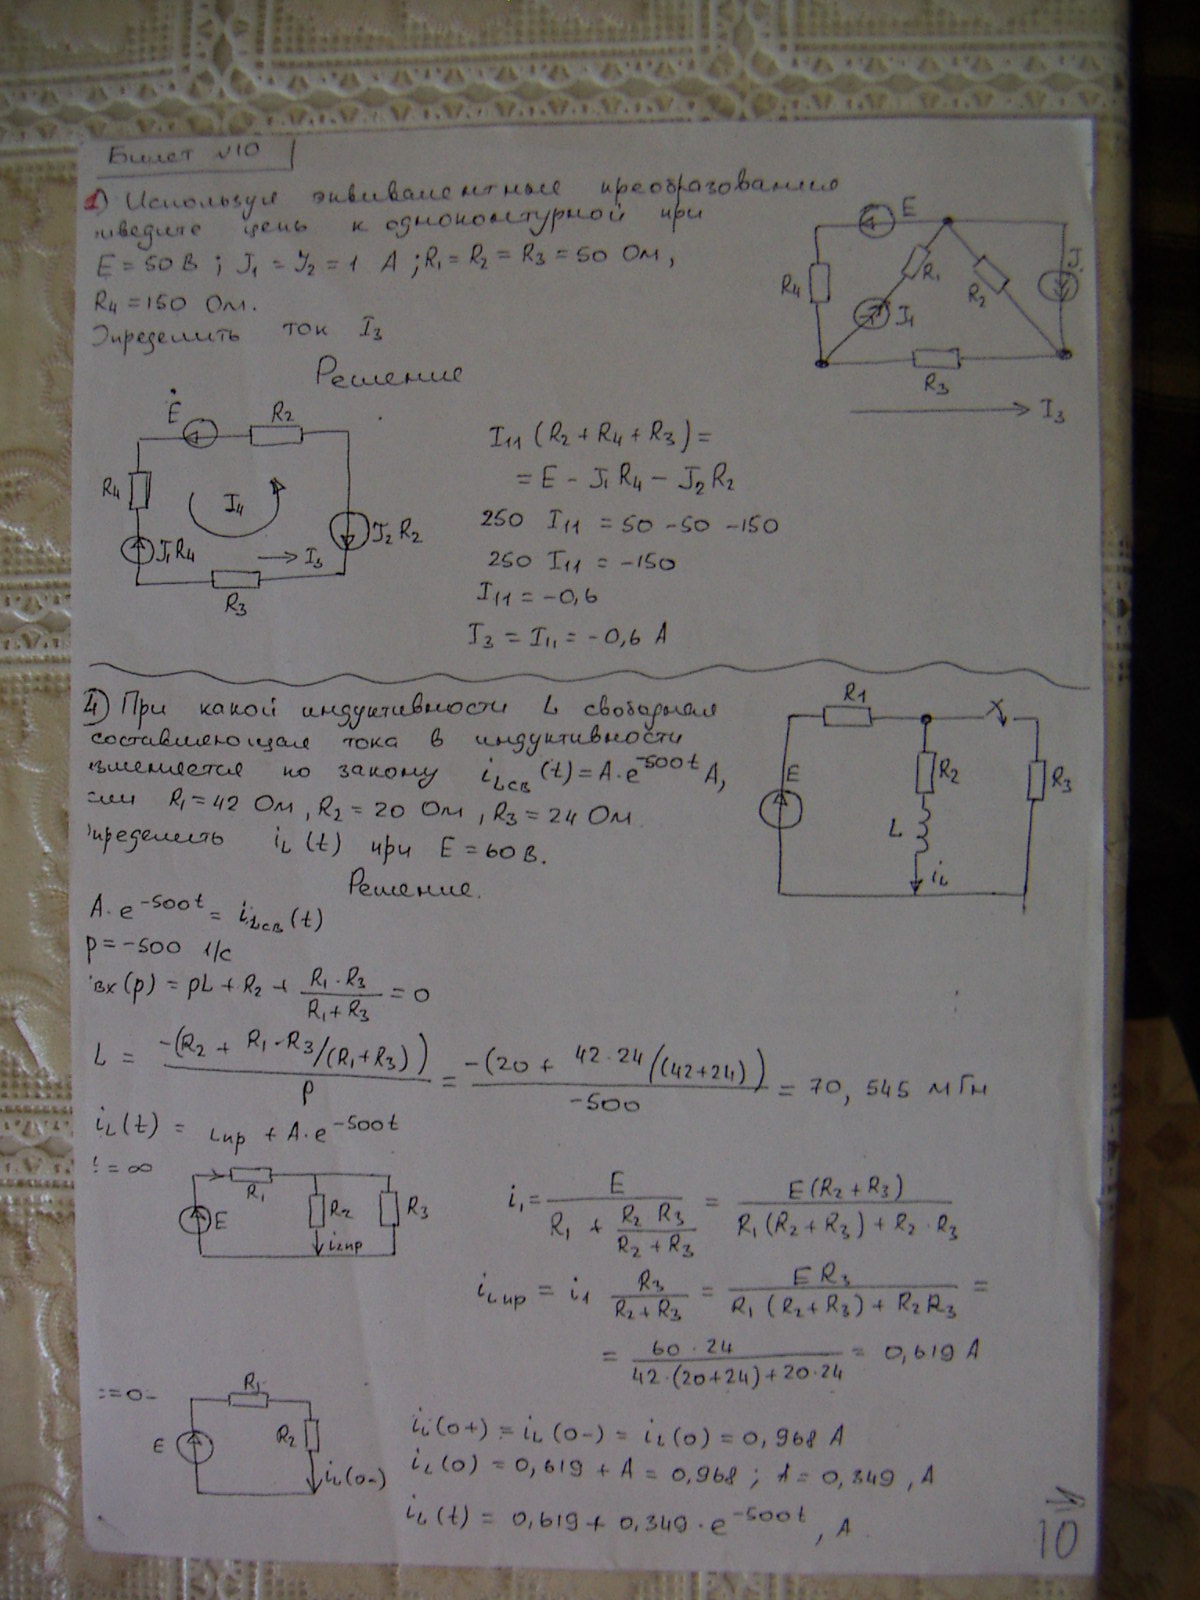 Билет №10
1) Используя эквивалентные преобразования
приведите цепь к одноконтурной при
E = 50 В ; J1 = J2 = 1 А ; R1 = R2 = R3 = 50 Ом,
R4 = 150 Ом.
Определить ток I3
E
R4
R1
J1
R2
J
R3
I3
Решение
E
R2
R4
I4
J1R4
J2R2
I3
R3
I11 (R2 + R4 + R3) =
= E - J1R4 - J2R2
250 I11 = 50 - 50 - 150
250 I11 = -150
I11 = -0,6
I3 = I11 = -0,6 А
4) При какой индуктивности L свободная
составляющая тока в индуктивности
изменяется по закону iLсв(t) = A·e^-500t А,
если R1 = 42 Ом, R2 = 20 Ом, R3 = 24 Ом.
Определить iL(t) при E = 60 В.
R1
E
R2
R3
L
iL
Решение.
A·e^-500t = iLсв(t)
p = -500 1/с
вх(p) = pL + R2 + R1·R3/(R1+R3) = 0
L = -(R2 + R1·R3/(R1+R3))/p = -(20 + 42·24/(42+24))/-500 = 70,545 мГн
iL(t) = Lпр + A·e^-500t
t = ∞
R1
E
R2
R3
i2пр
i1 = E/(R1 + R2 R3/(R2+R3)) = E(R2+R3)/(R1(R2+R3) + R2·R3)
iLпр = i1 R3/(R2+R3) = E R3/(R1(R2+R3) + R2R3) =
= 60·24/(42·(20+24)+20·24) = 0,619 А
t=0-
R1
E
R2
iL(0-)
iL(0+) = iL(0-) = iL(0) = 0,968 А
iL(0) = 0,619 + A = 0,968 ; A = 0,349 , А
iL(t) = 0,619 + 0,349·e^-500t , А
10